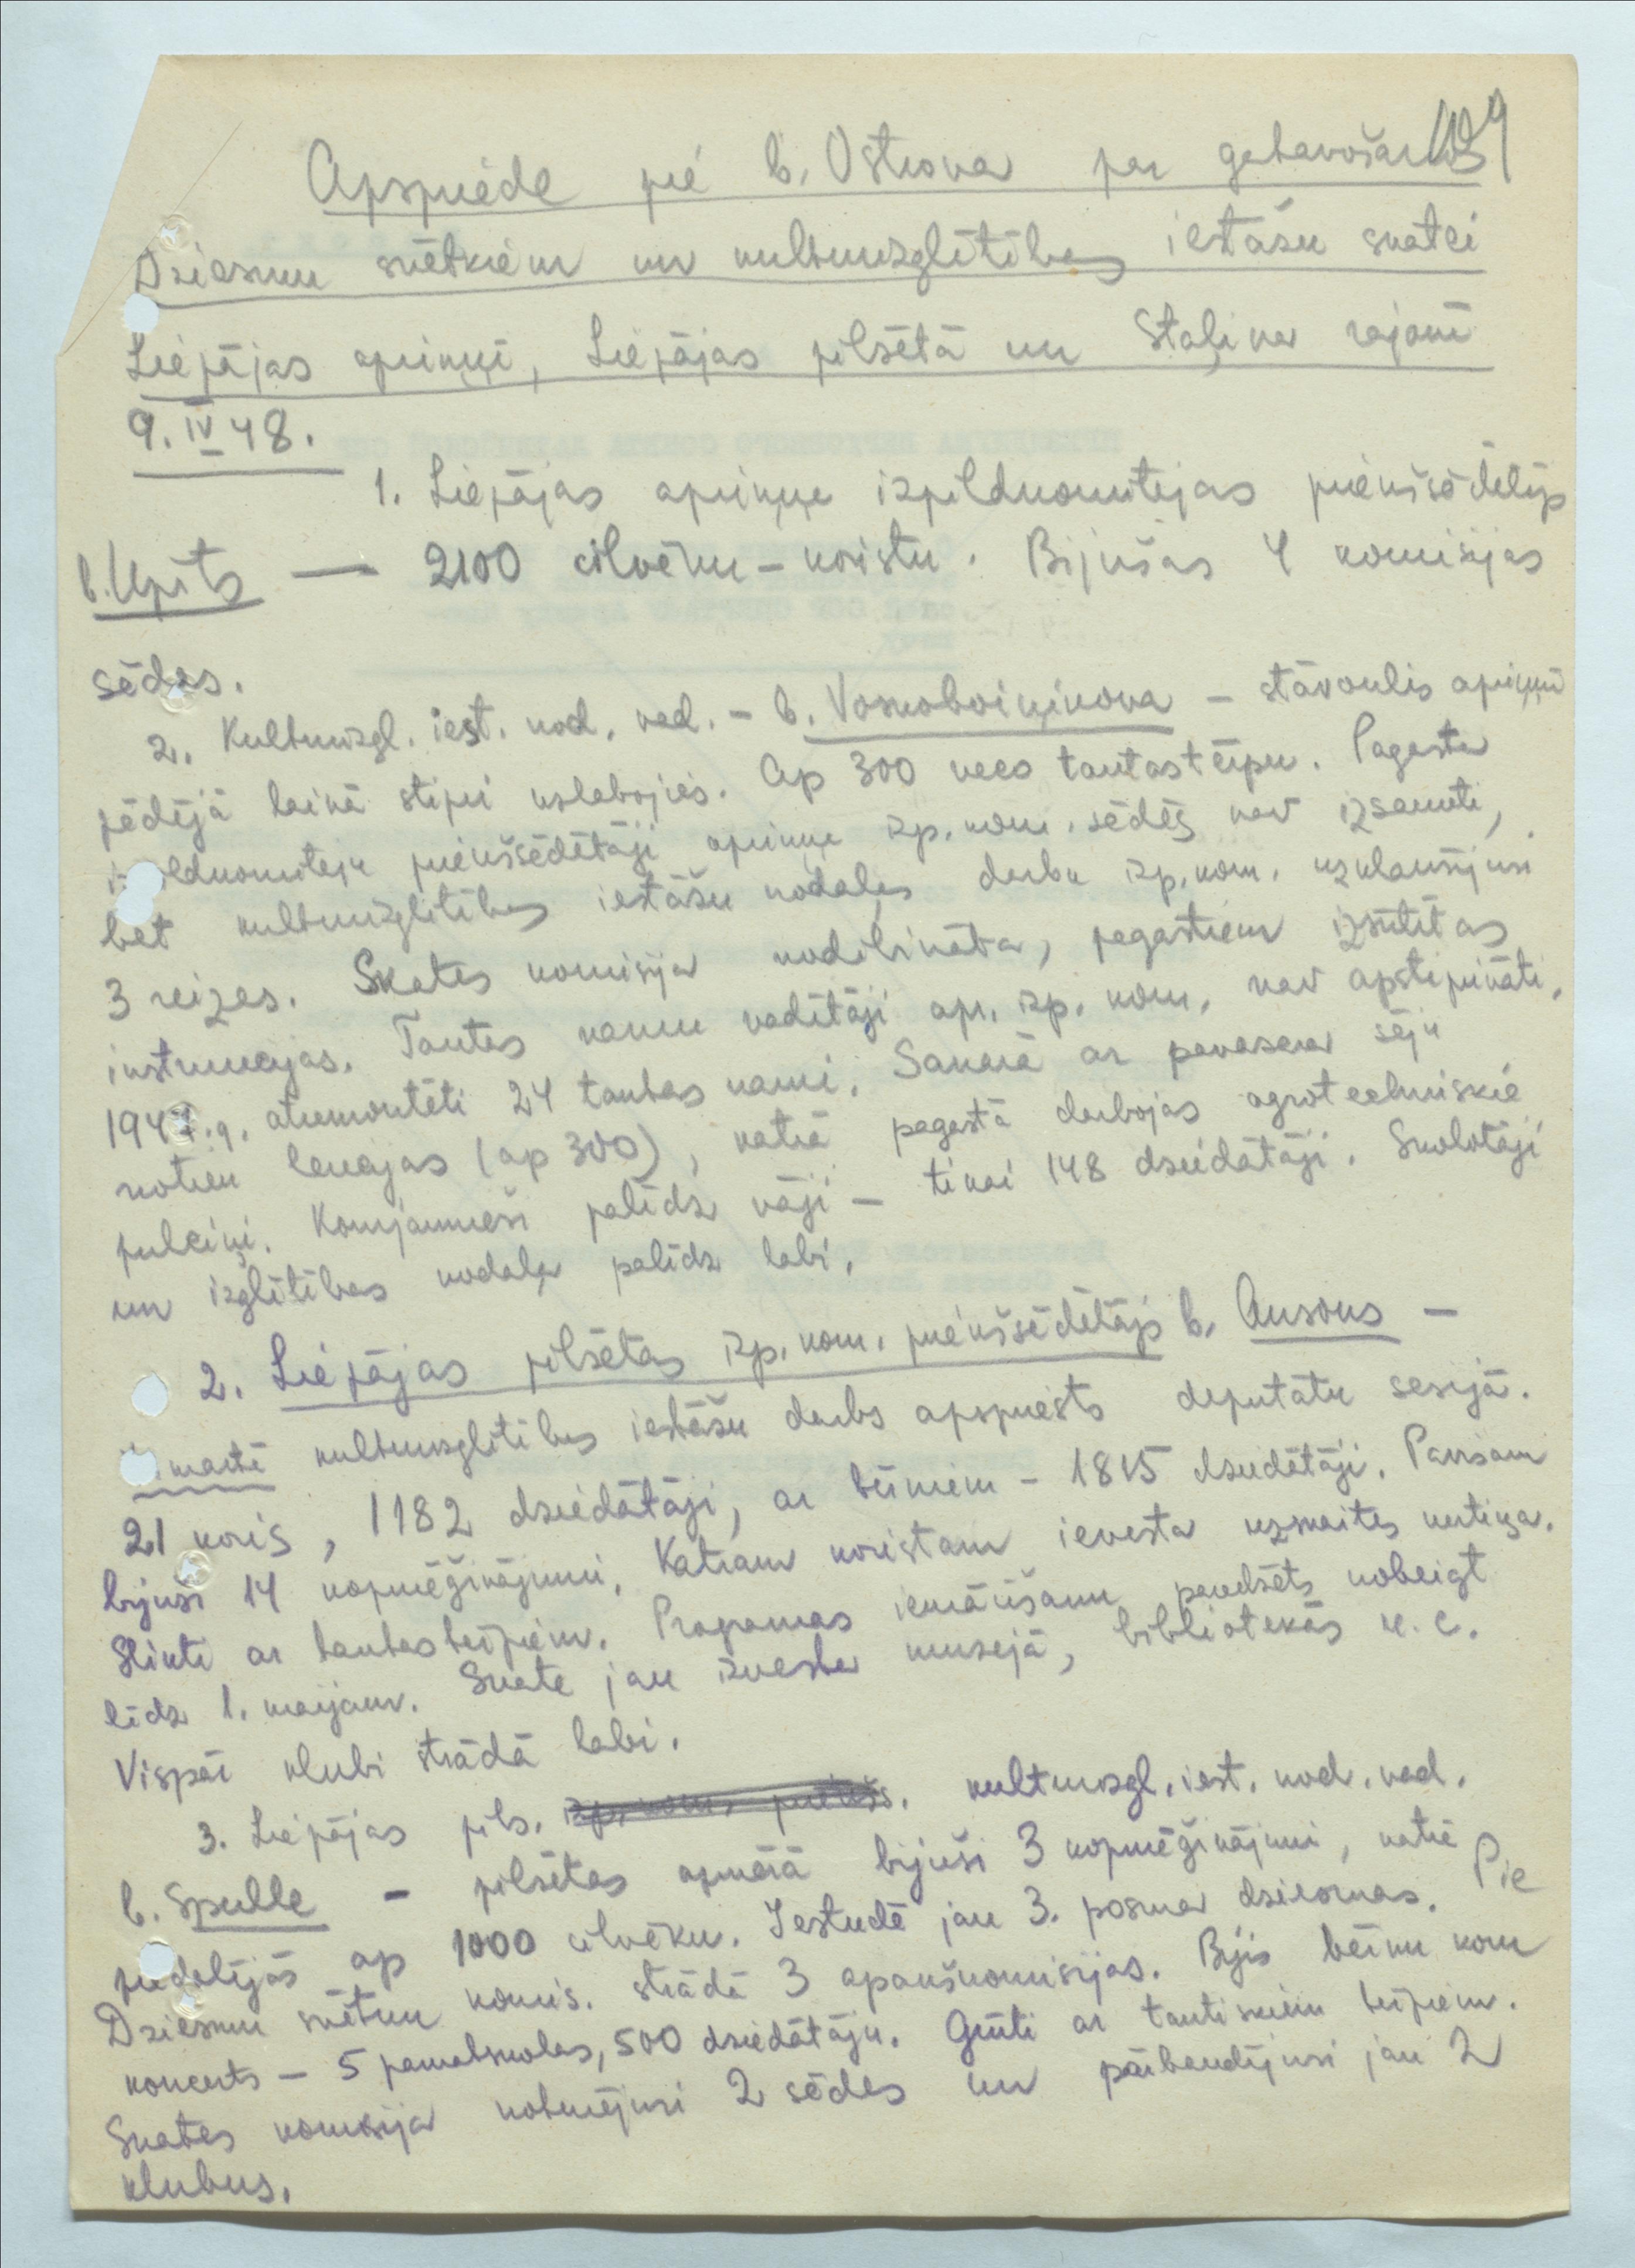 109
Apspriede pie b. Ostrova par gatavošanos
Dziesmu svētkiem un kultūrizglītības iestāžu skatei
Liepājas apriņķī, Liepājas pilsētā un Staļina rajonā
9. IV 48.
1. Liepājas apriņķa izpildkomitejas priekšsēdētājs
b. Upīts — 2100 cilvēku - koristu. Bijušas 4 komisijas
sēdes.
2. Kultūrizgl. iest. nod. vad. - b. Voskoboiņikova - stāvoklis apriņķī
pēdējā laikā stipri uzlabojies. Ap 300 veco tautastērpu. Pagasta
izpildkomiteju priekšsēdētāji apriņķa izp. kom. sēdēs nav izsaukti,
bet kultūrizglītības iestāžu nodaļas darbu izp. kom. uzklausījusi
3 reizes. Skates komisija nodibināta, pagastiem izsūtītas
instrukcijas. Tautas namu vadītāji apr. izp. kom. nav apstiprināti.
1947. g. atremontēti 24 tautas nami. Sakarā ar pavasara sēju
notiek lekcijas (ap 300), katrā pagastā darbojas agrotechniskie
pulciņi. Komjaunieši palīdz vāji - tikai 148 dziedātāji. Skolotāji
un izglītības nodaļa palīdz labi.
2. Liepājas pilsētas izp. kom. priekšsēdētājs b. Ansons -
martā kultūrizglītības iestāžu darbs apspriests deputātu sesijā.
21 koris, 1182 dziedātāji, ar bērniem - 1815 dziedātāji. Pavisam
bijuši 14 kopmēģinājumi. Katram koristam ievesta uzskaites kartiņa.
Slikti ar tautastērpiem. Programas iemācīšanu paredzēts nobeigt
līdz 1. maijam. Skate jau izvesta muzejā, bibliotekās u. c.
Vispār klubi strādā labi.
3. Liepājas pils. izp. kom. priekšs. kultūrizgl. iest. nod. vad.
b. Spulle - pilsētas apmērā bijuši 3 kopmēģinājumi, katrā
piedalījās ap 1000 cilvēku. Iestudē jau 3. posma dziesmas. Pie
Dziesmu svētku komis. strādā 3 apakškomisijas. Bijis bērnu koru
koncerts - 5 pamatskolas, 500 dziedātāju. Grūti ar tautiskiem tērpiem.
Skates komisija noturējusi 2 sēdes un pārbaudījusi jau 2
klubus.